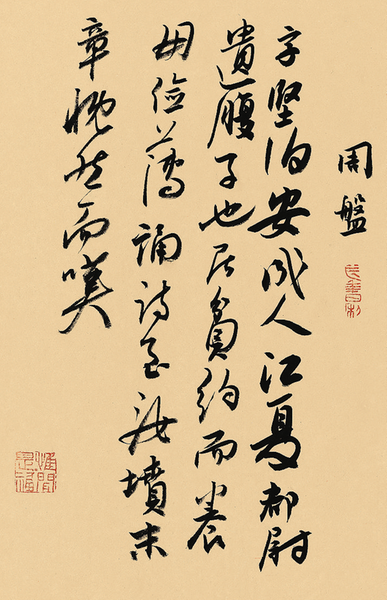 周盤
字堅伯安成人江夏都尉
遺腹子也居貧約而養
母儉薄誦詩至汝墳末
章慨然而嘆